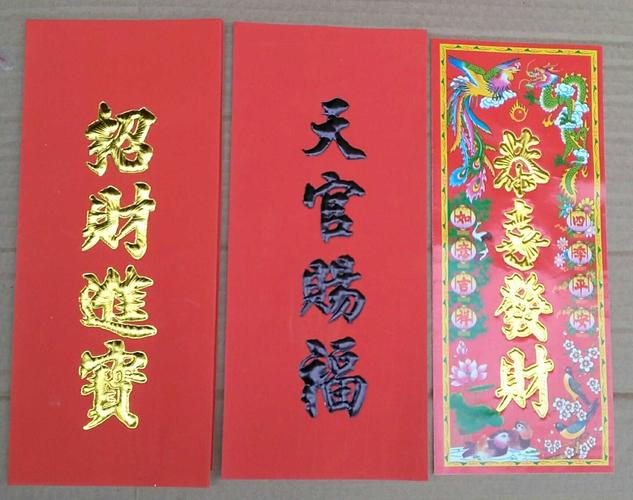 招財進寶
天官賜福
恭喜發財
四季平安
如意吉祥